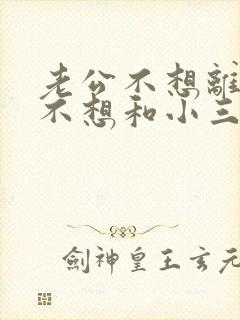 老公不想離
不想和小三
劍神皇王玄元